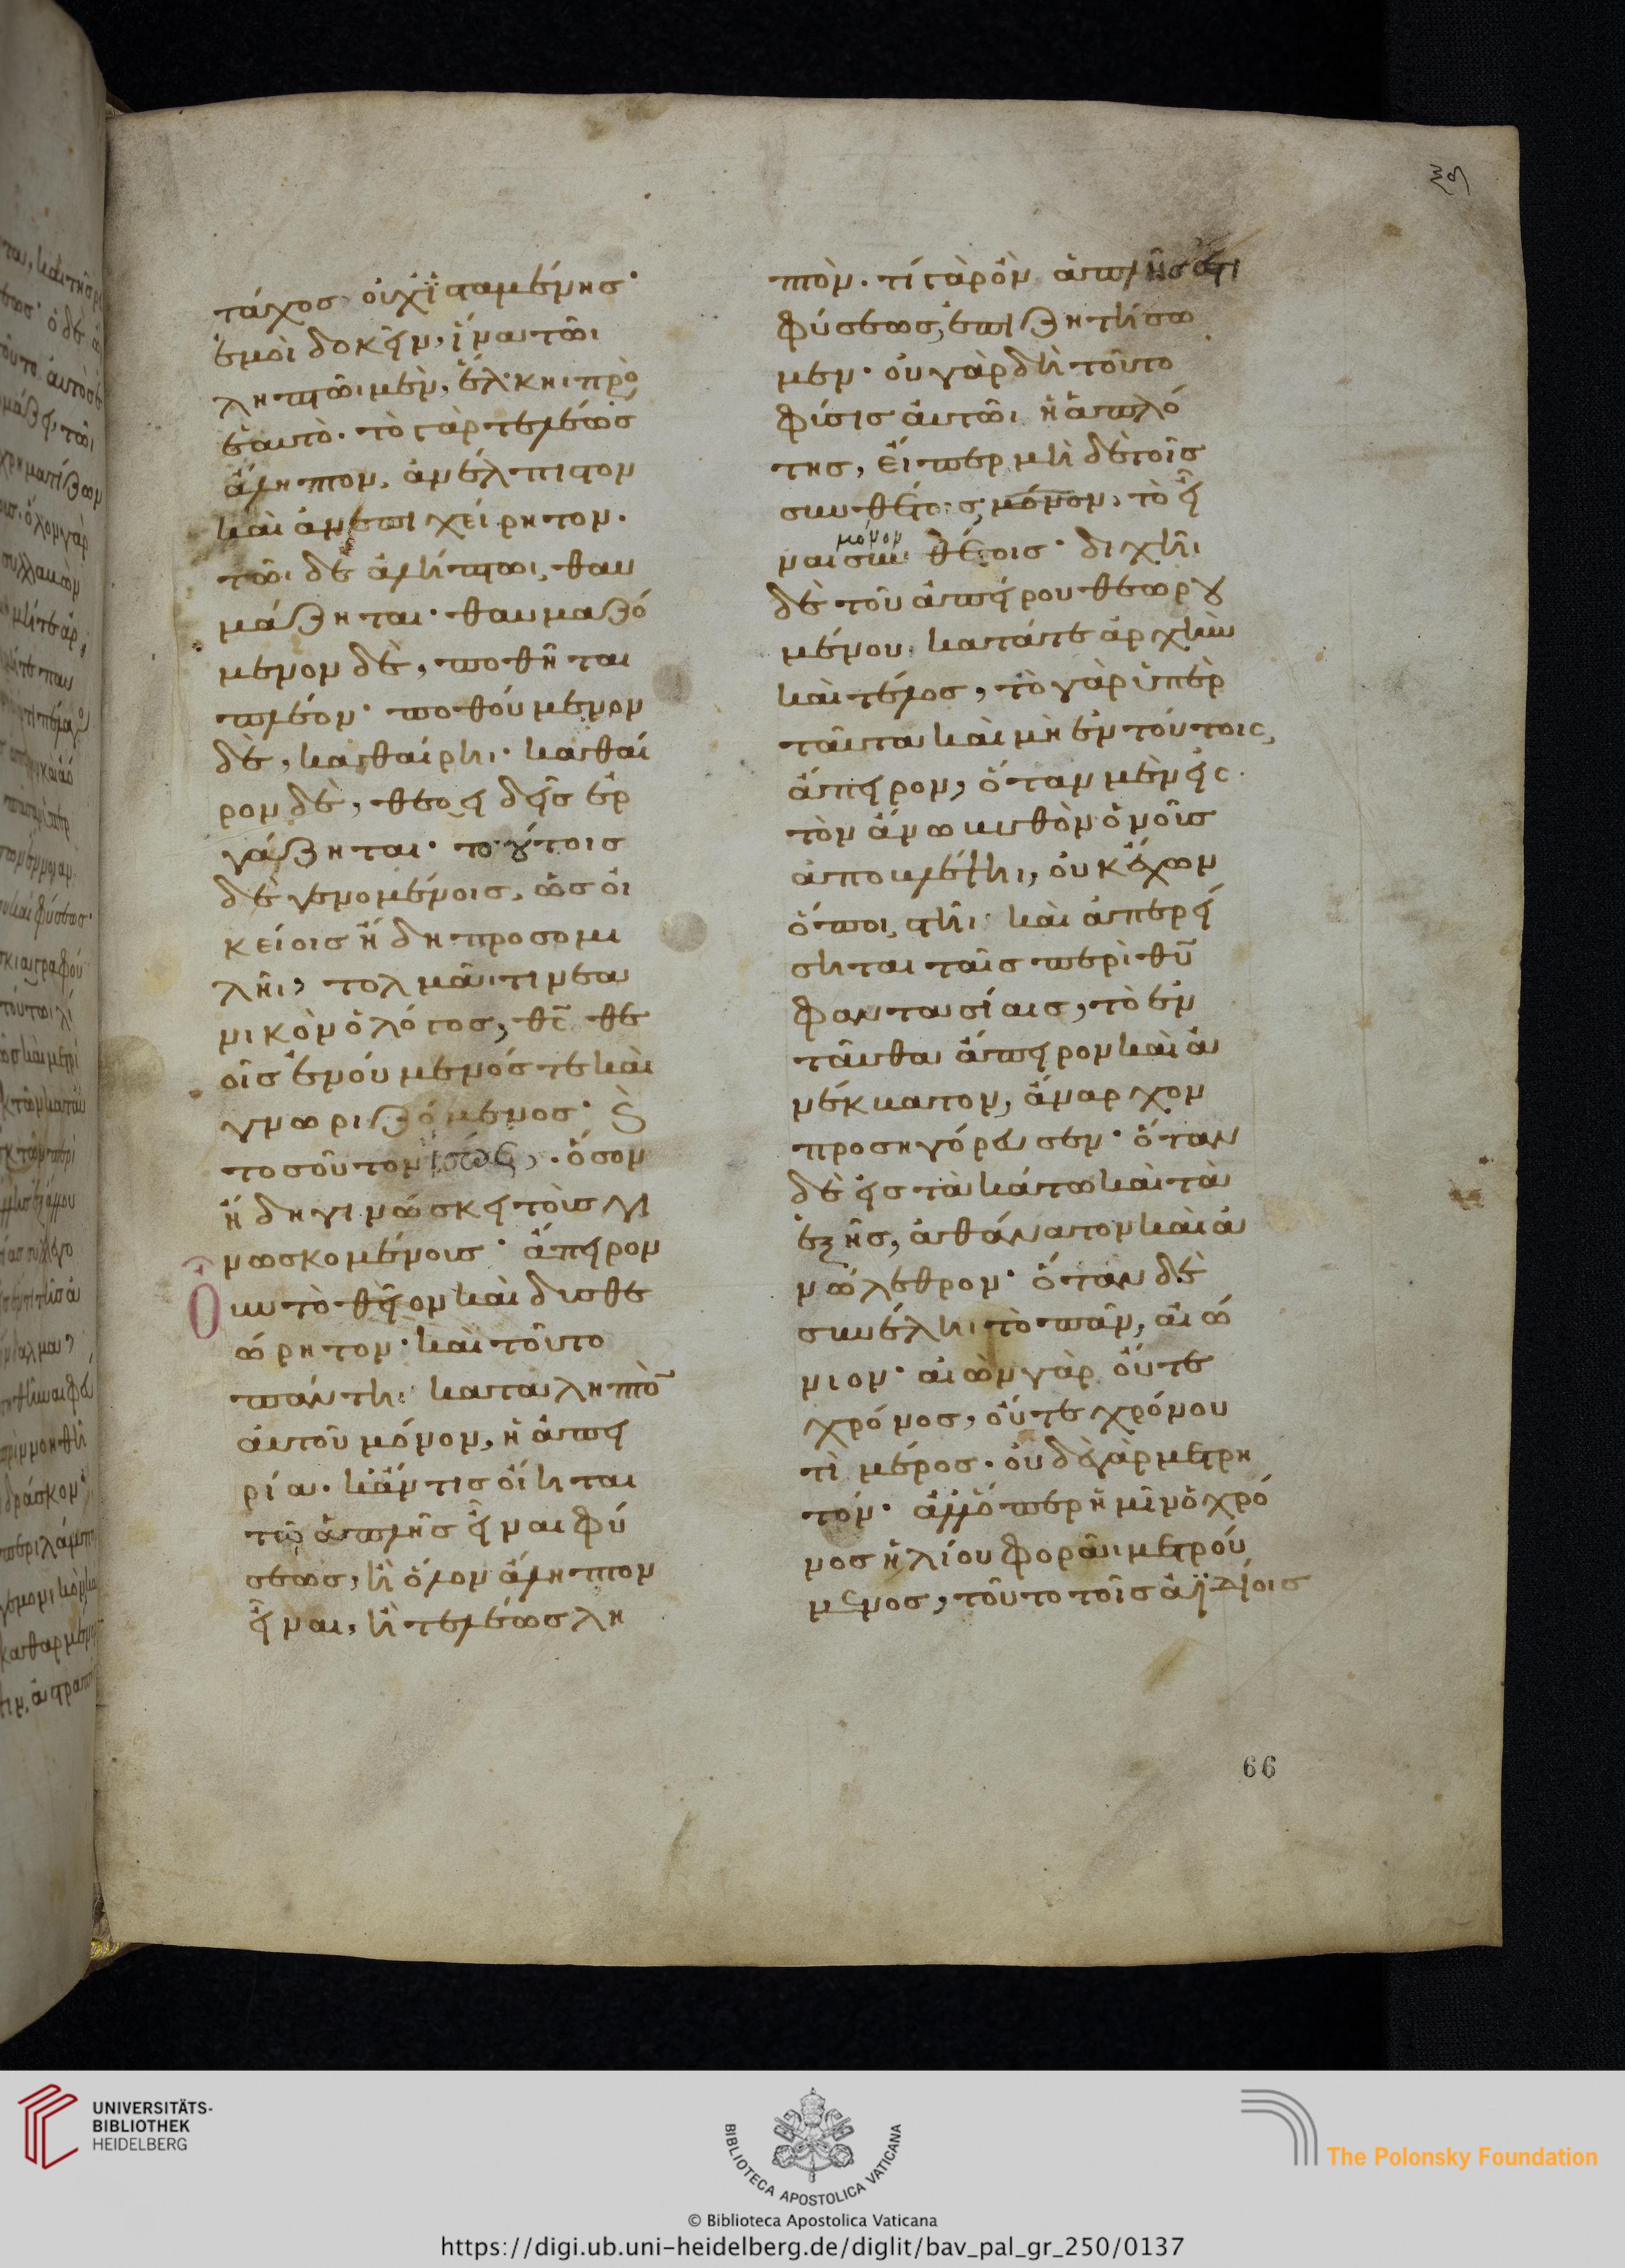 τάχος οὐχ ἱσταμένης·
ἐμοὶ δοκεῖν, ἵνα τῶι
ληπτῶι μὲν, ἕλκηι πρὸ
ἑαυτό· τὸ γὰρ τελέως
ἄληπτον, ἀνέλπιστον
καὶ ἀνεπιχείρητον.
τῶι δὲ ἀλήπτωι, θαυ
μάζηται· θαυμαζό
μενον δὲ, ποθῆται
πλέον· ποθούμενον
δὲ, καθαίρηι· καθαῖ
ρον δὲ, θεοειδεῖς ἐρ
γάζηται· τούτοις
δὲ γενομένοις, ὡς οἰ
κείοις ἤδη προσομι
λῆι, τολμᾶι τι νεα
νικὸν ὁ λόγος, θς θε
οῖς ἑνούμενός τε καὶ
γνωριζόμενος· καὶ
τοσοῦτον ἴσως, ὅσον
ἤδη γινώσκει τοὺς γι
νωσκομένους· ἄπειρον
Οὖν τὸ θεῖον καὶ δυσθε
ώρητον· καὶ τοῦτο
πάντηι καταληπτὸν
αὐτοῦ μόνον, ἡ ἀπει
ρία. κἄν τις οἴηται
τῷ ἁπλῆς εἶναι φύ
σεως, ἢ ὅλον ἄληπτον
εἶναι, ἢ τελέως λη
πτόν. τί γὰρ ὃν ἁπλῆς ἐστι
φύσεως, ἐπιζητήσω
μεν· οὐ γὰρ δὴ τοῦτο
φύσις αὐτῶι ἡ ἁπλό
της, εἴπερ μὴ δὲ τοῖς
συνθέτοις μόνον, τὸ εἶ
ναι συνθέτοις· διχῆι
μόνον
δὲ τοῦ ἀπείρου θεωρου
μένου, κατά τε ἀρχὴν
καὶ τέλος, τὸ γὰρ ὑπὲρ
ταῦτα καὶ μὴ ἐν τούτοις,
ἄπειρον, ὅταν μὲν εἰς
τὸν ἄνω βυθὸν ὁ νοῦς
ἀποβλέψηι, οὐκ ἔχων
ὅποι στῆι καὶ ἀπερεί
σηται ταῖς περὶ θυ
φαντασίαις, τὸ ἐν
ταῦθα ἄπειρον καὶ ἀ
νέκβατον, ἄναρχον
προσηγόρευσεν· ὅταν
δὲ εἰς τὰ κάτω καὶ τὰ
ἑξῆς, ἀθάνατον καὶ ἀ
νώλεθρον· ὅταν δὲ
συνέληι τὸ πᾶν, αἰώ
νιον· αἰὼν γὰρ οὔτε
χρόνος, οὔτε χρόνου
τὶ μέρος· οὐδὲ γὰρ μετρη
τόν· ἀλλ' ὅπερ ἡμῖν ὁ χρό
νος ἡλίου φορᾶι μετρού
μενος, τοῦτο τοῖς ἀϊδίοις
66
UNIVERSITÄTS-
BIBLIOTHEK
HEIDELBERG
BIBLIOTECA APOSTOLICA VATICANA
The Polonsky Foundation
© Biblioteca Apostolica Vaticana
https://digi.ub.uni-heidelberg.de/diglit/bav_pal_gr_250/0137